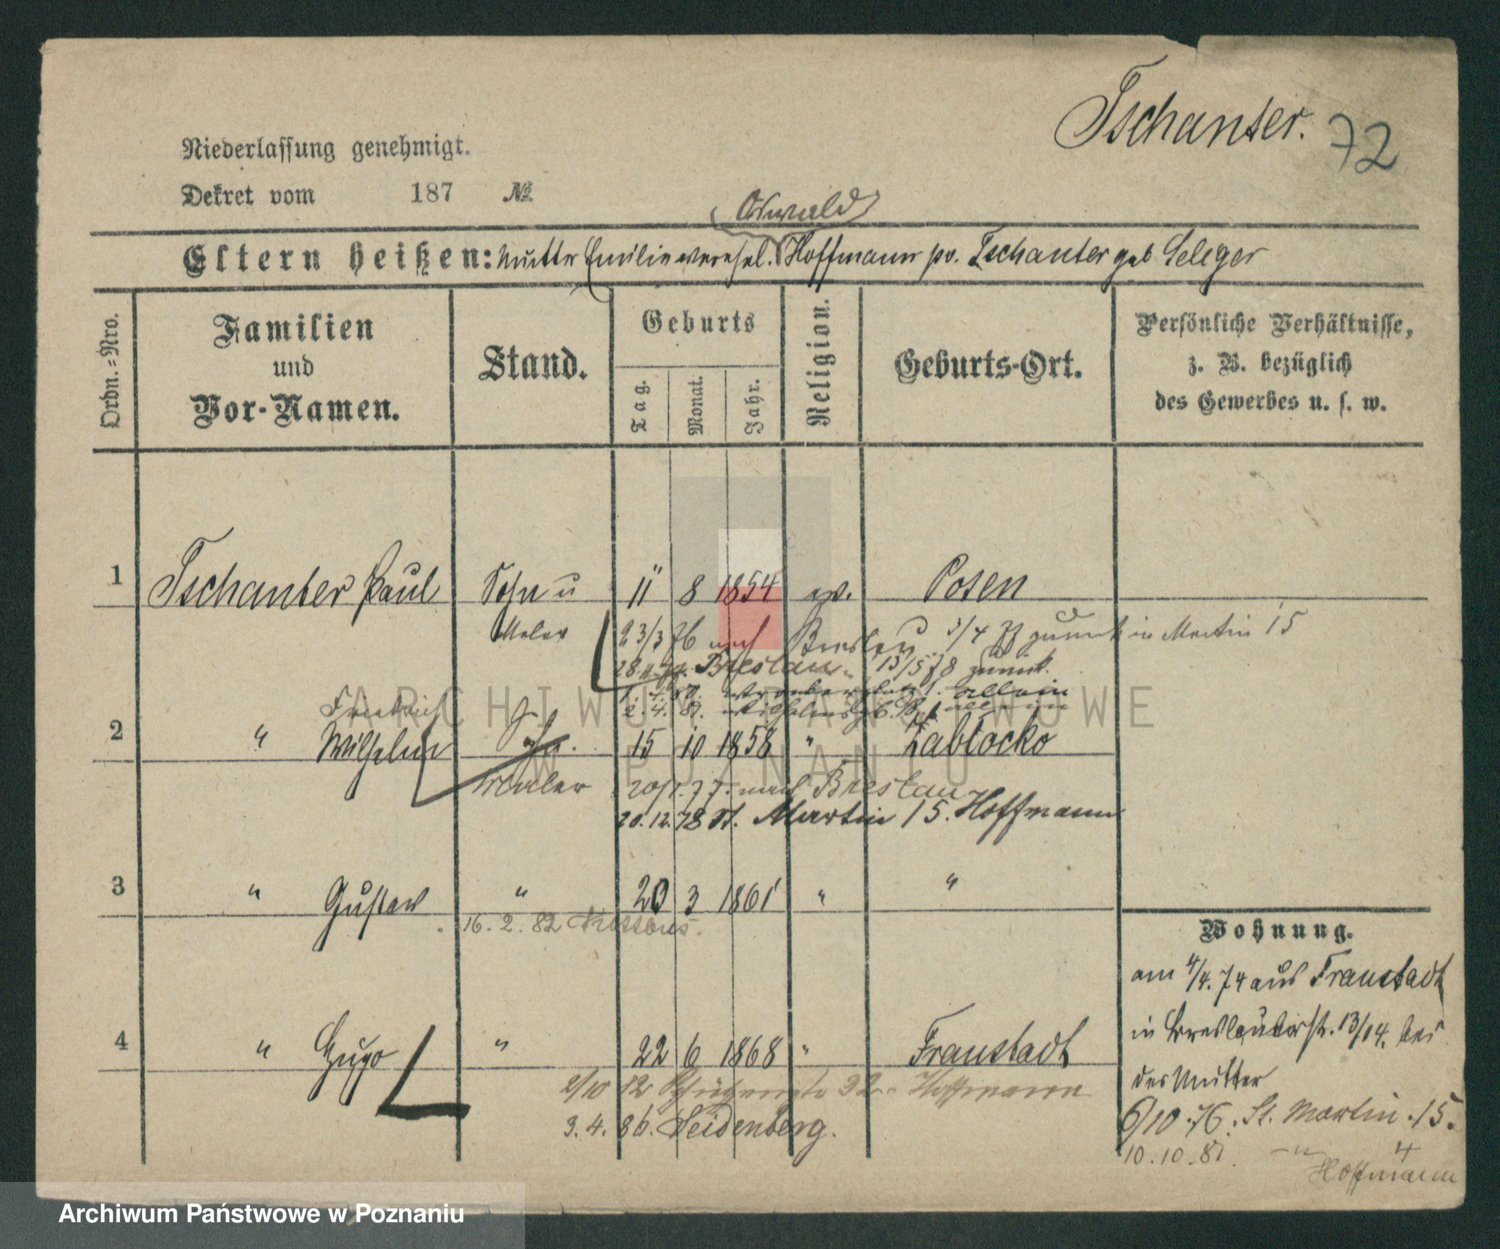 Tschanter. 72
Niederlassung genehmigt.
Dekret vom 187 №
Oswald
Eltern heißen: Mutter Emilie verehel. Hoffmann pv. Tschanter geb Seleger
Ordn.=Nro.
Familien
und
Vor-Namen.
Stand.
Geburts
Tag.
Monat.
Jahr.
Religion.
Geburts-Ort.
Persönliche Verhältnisse,
z. B. bezüglich
des Gewerbes u. s. w.
1 Tschanter Paul Sohn u 11 8 1854 ev. Posen
Maler 23/3 76 nach Breslau 3/4 77 zurück in Martin 15
Breslau 13/5 78 zurück.
1. allein
2. 4. 81. allein
Friedrich
2 " Wilhelm 15 10 1858 " Zablocko
Maler 77. nach Breslau
20.12.78 St. Martin 15. Hoffmann
3 " Gustav " 20 3 1861 " "
16. 2. 82
4 " Hugo " 22 6 1868 " Fraustadt
2/10 82 32 Hoffmann
3. 4. 86. Seidenberg.
Wohnung.
am 4/4. 74 aus Fraustadt
in Breslauerstr. 13/14. bei
der Mutter
6/10 76. St. Martin 15.
10. 10. 81. - " - 4
Hoffmann
ARCHIWUM PAŃSTWOWE
W POZNANIU
Archiwum Państwowe w Poznaniu